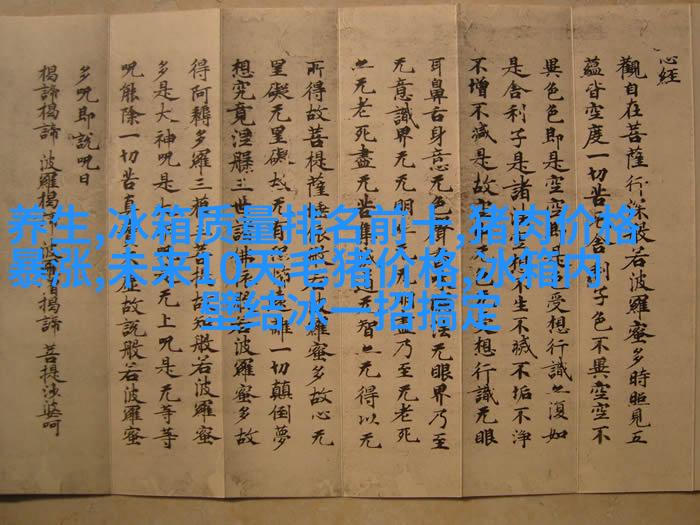 心经
觀自在菩薩行深般若波羅蜜多時照見五
蘊皆空度一切苦厄舍利子色不異空空不
異色色即是空空即是色受想行識亦復如
是舍利子是諸法空相不生不滅不垢不淨
不增不減是故空中无色无受想行識无眼
耳鼻舌身意无色聲香味觸法无眼界乃至
无意識界无无明亦无无明盡乃至无老死
亦无老死盡无苦集滅道无智亦无得以无
所得故菩提薩埵依般若波羅蜜多故心无
罣礙无罣礙故无有恐怖遠離一切顛倒夢
想究竟涅槃三世諸佛依般若波羅蜜多故
得阿耨多羅三藐三菩提故知般若波羅蜜
多是大神呪是大明呪是无上呪是无等等
呪能除一切苦真實不虛故說般若波羅蜜
多呪即說呪曰
揭諦揭諦 波羅揭諦 波羅僧揭諦 菩提婆呵
养生,冰箱质量排名前十,猪肉价格
暴涨,未来10天毛猪价格,冰箱内
壁结冰一招搞定